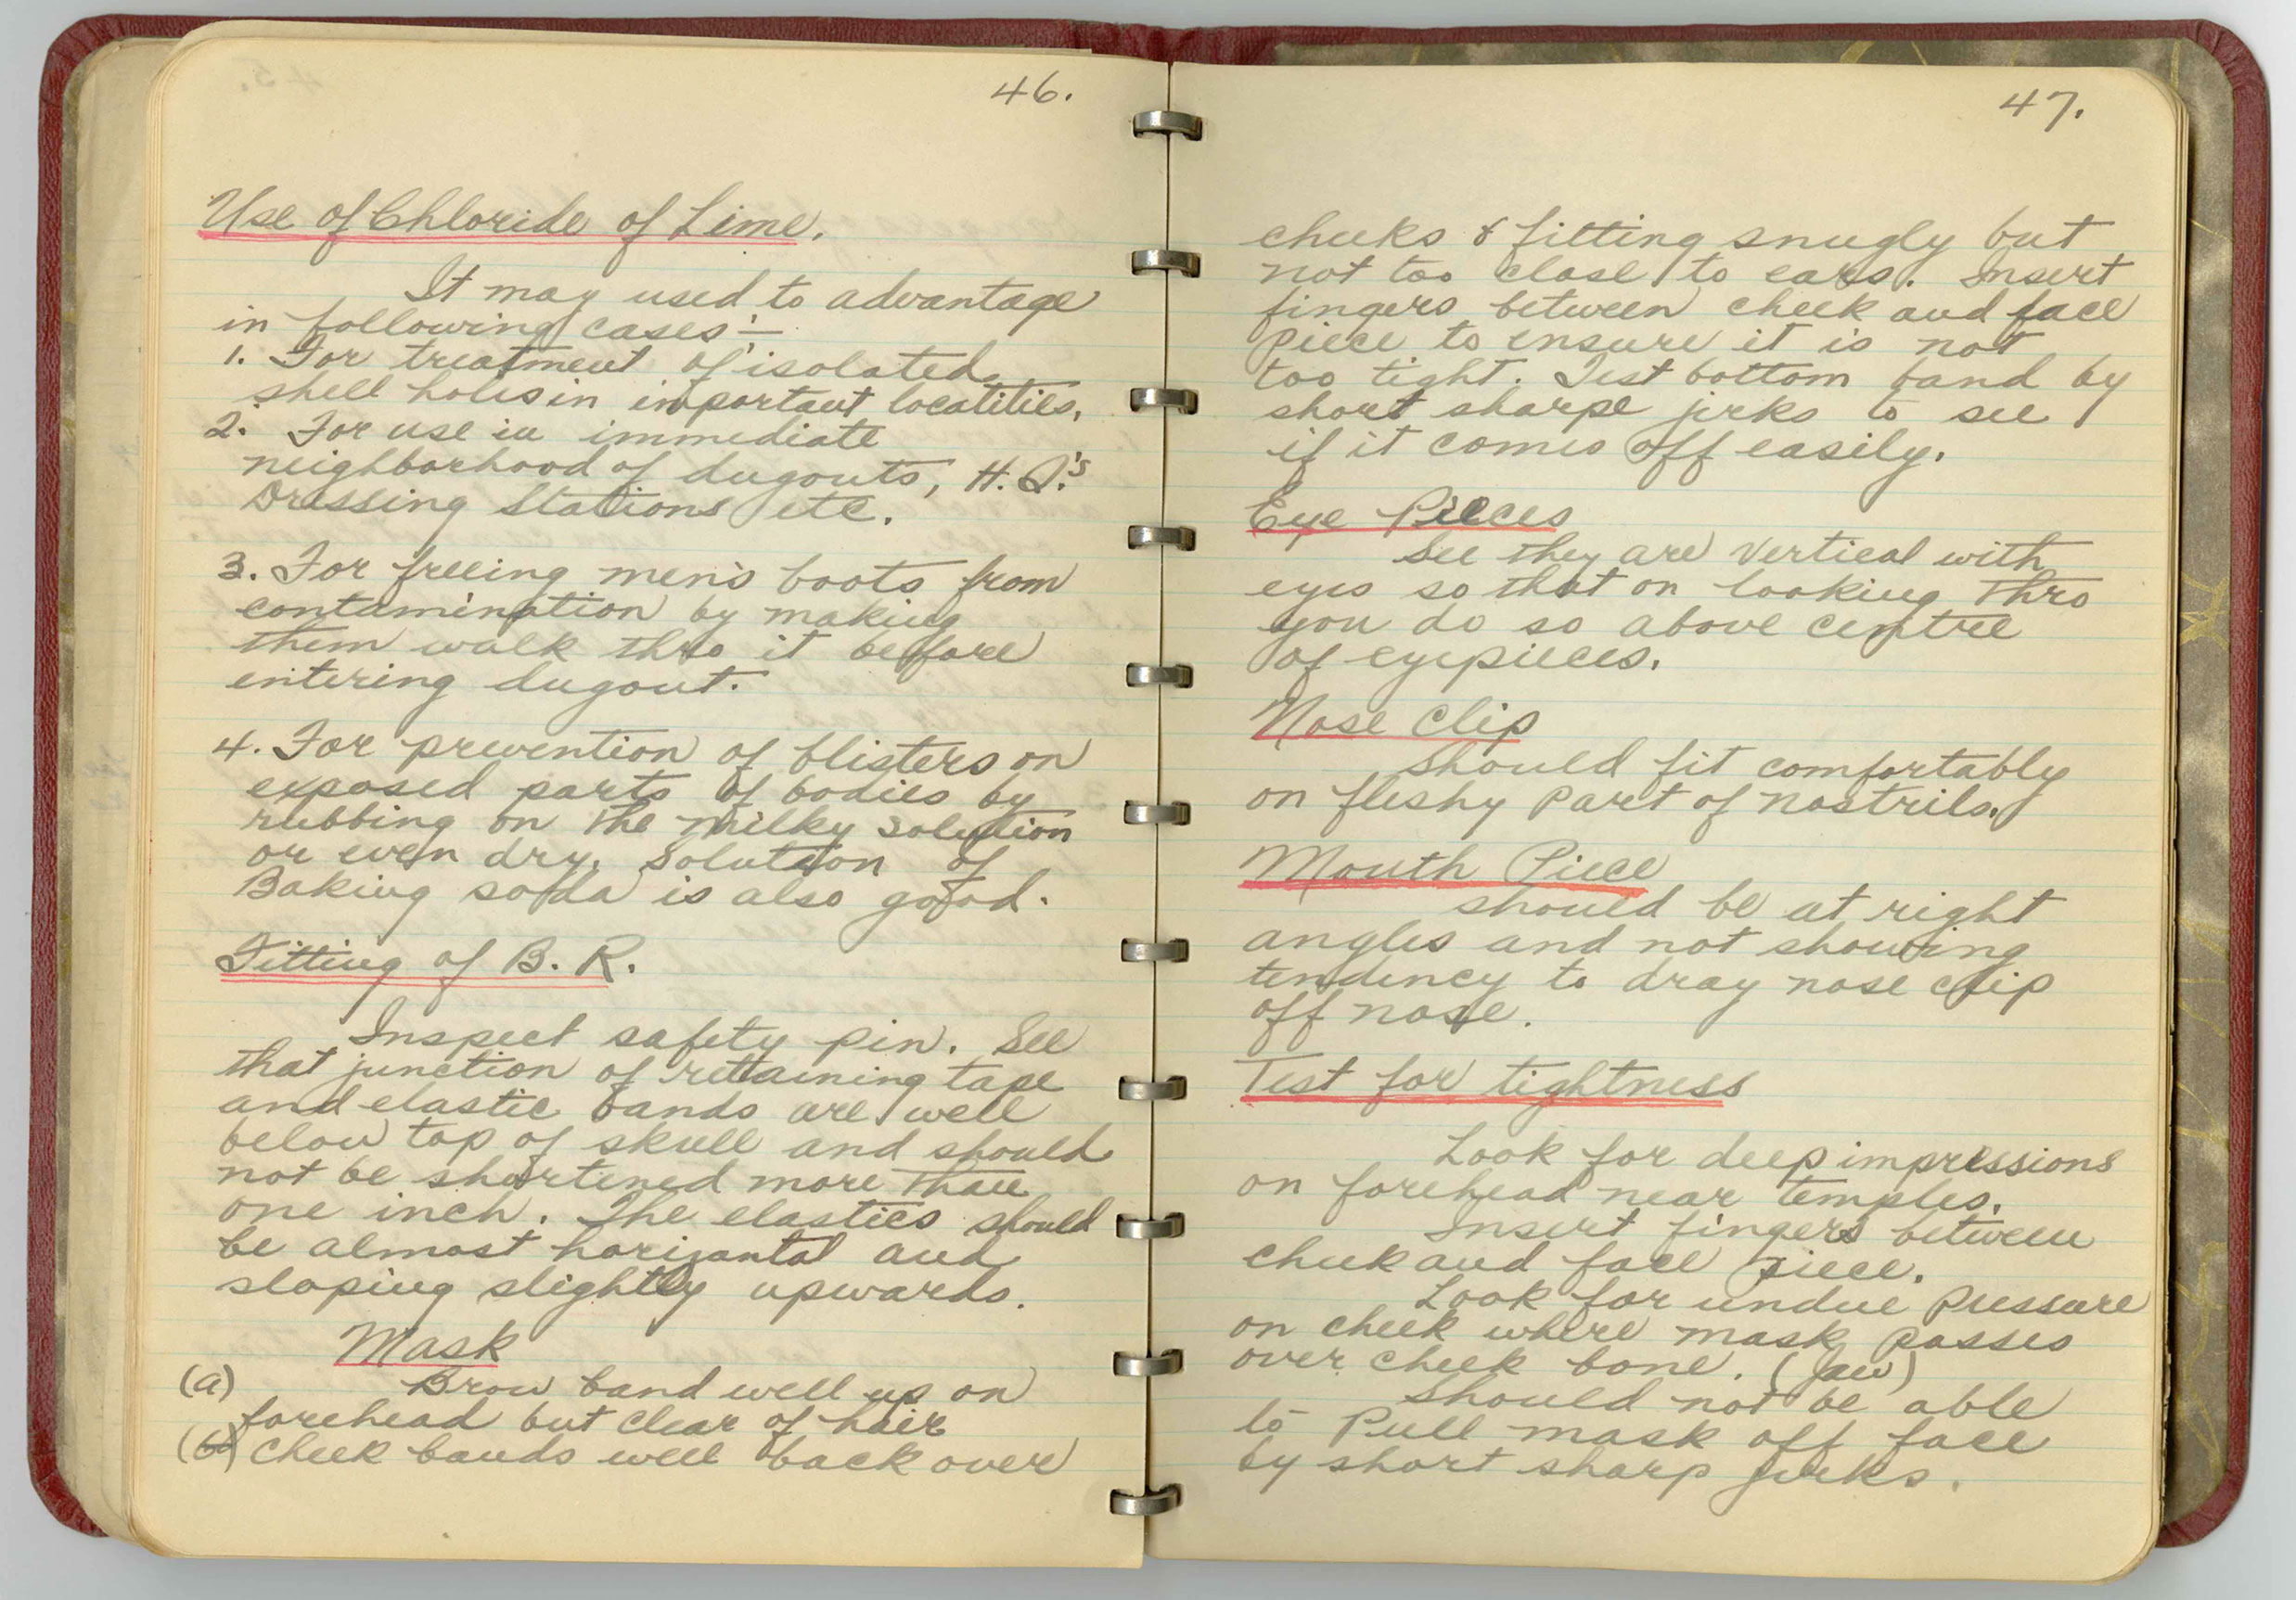 46.
Use of Chloride of Lime.
It may used to advantage
in following cases:—
1. For treatment of isolated
shell holes in important localities.
2. For use in immediate
neighborhood of dugouts, H.Q.'s
Dressing Stations etc.
3. For freeing men's boots from
contamination by making
them walk thro it before
entering dugout.
4. For prevention of blisters on
exposed parts of bodies by
rubbing on the milky solution
or even dry. Solution of
Baking soda is also good.
Fitting of B. R.
Inspect safety pin. See
that junction of retaining tape
and elastic bands are well
below top of skull and should
not be shortened more than
one inch. The elastics should
be almost horizontal and
sloping slightly upwards.
Mask
(a) Brow band well up on
forehead but clear of hair
(b) Cheek bands well back over
47.
cheeks & fitting snugly but
not too close to ears. Insert
fingers between cheek and face
piece to ensure it is not
too tight. Test bottom band by
short sharpe jerks to see
if it comes off easily.
Eye Pieces
See they are vertical with
eyes so that on looking thro
you do so above centre
of eyepieces.
Nose Clip
should fit comfortably
on fleshy part of nostrils.
Mouth Piece
should be at right
angles and not showing
tendency to drag nose clip
off nose.
Test for tightness
Look for deep impressions
on forehead near temples.
Insert fingers between
cheek and face piece.
Look for undue pressure
on cheek where mask passes
over cheek bone. (Jaw)
should not be able
to Pull mask off face
by short sharp jerks.